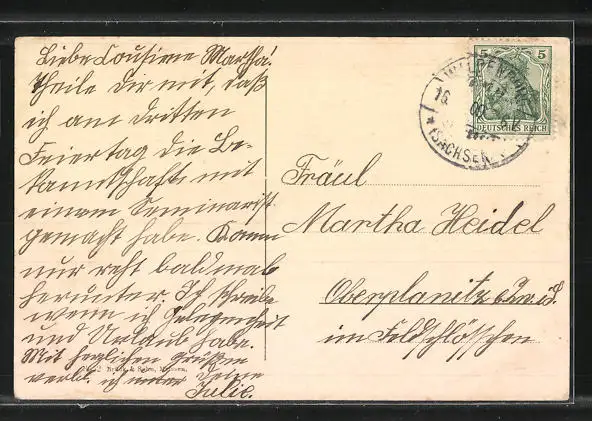 Liebe Cousiene Martha!
Theile Dir mit, daß
ich am dritten
Feiertag die Be-
kanntschaft mit
einem Seminarist
gemacht habe. Komm
nur recht baldmal
herunter. Ich schreibe
wenn ich Gelegenheit
und Urlaub habe.
Mit herzlichen Grüßen
verbl. ich Deine
Julie.
Brück & Sohn, Meissen.
5 5
DEUTSCHES REICH
WILDENFELS
16
(SACHSEN)
Fräul
Martha Heidel
Oberplanitz b. Zw i. S.
im Feldschlösschen